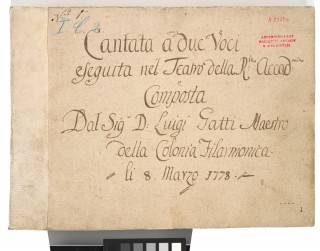 Nro 1
Cantata à due Voci
eseguita nel Teatro della Rle Accad
Composta
Dal Sigr D: Luigi Gatti Maestro
della Colonia Filarmonica
li 8 Marzo 1778